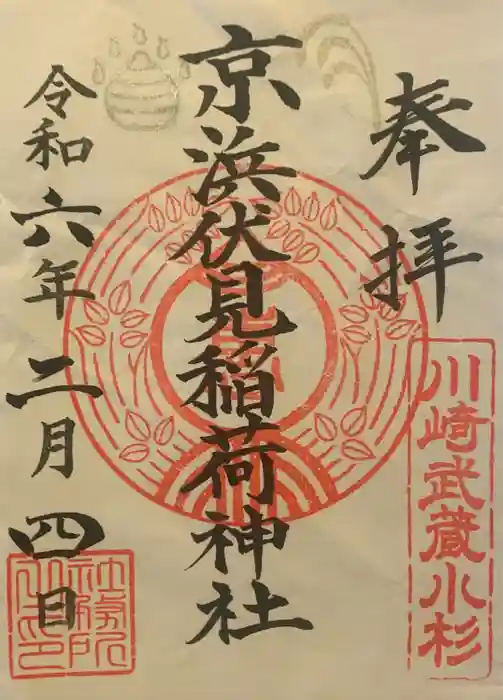 奉拝
川崎武蔵小杉
京浜伏見稲荷神社
令和六年二月四日